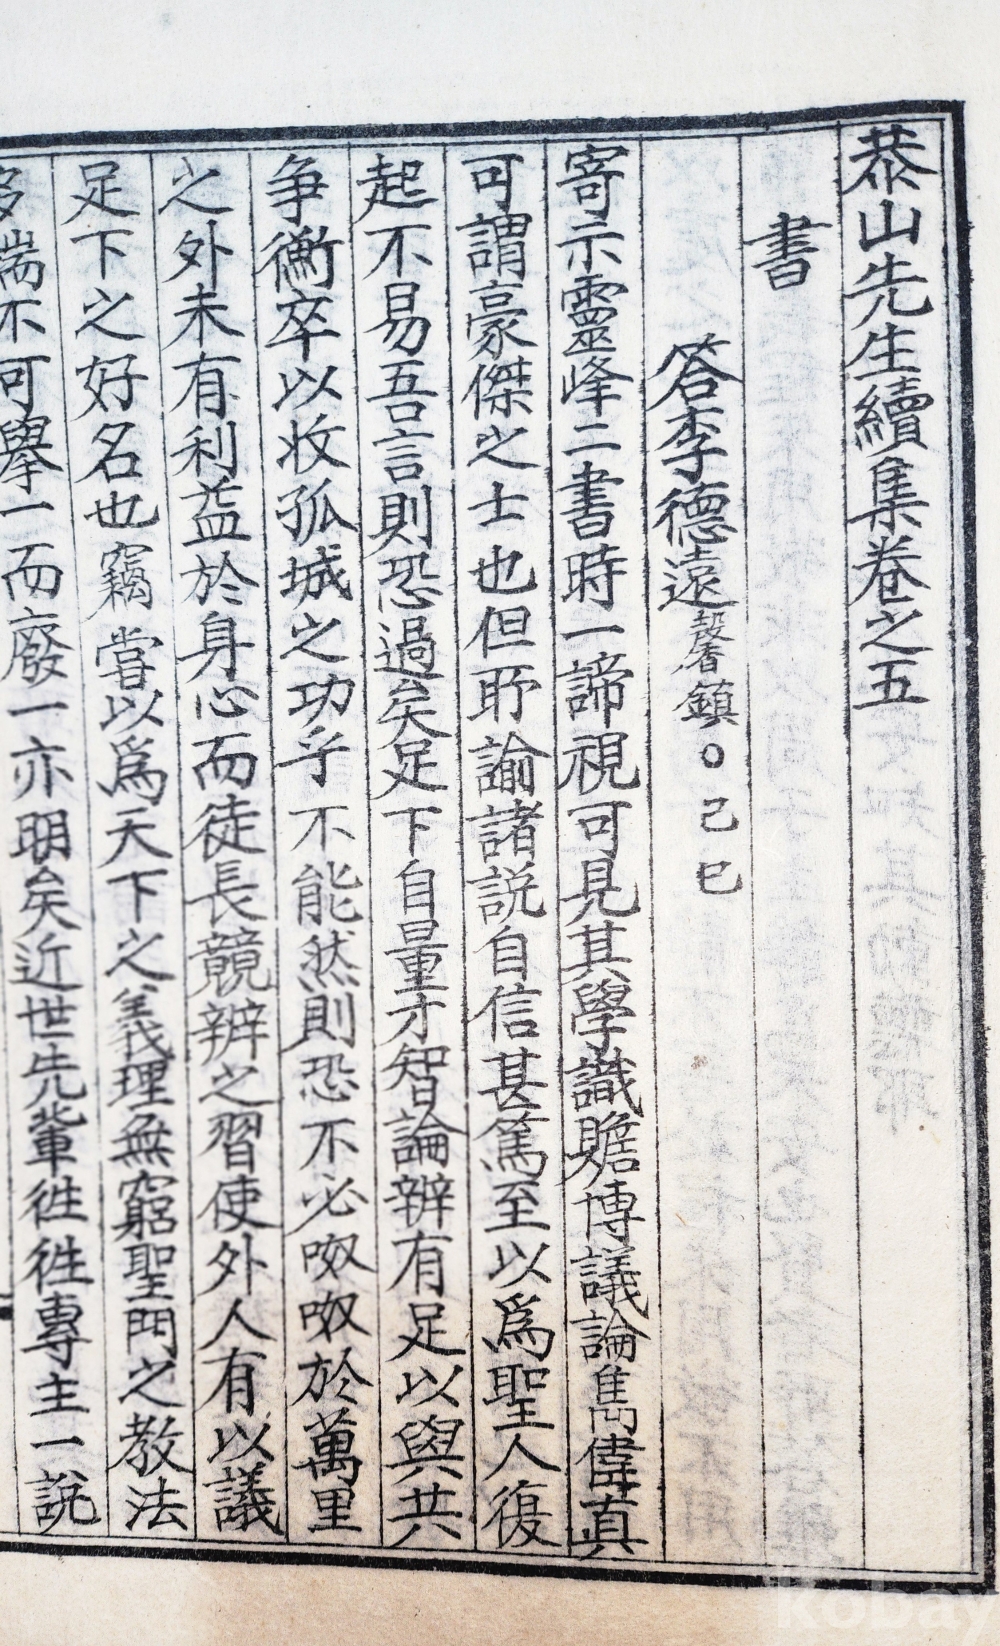 泰山先生續集卷之五
書
答李德遠馨鎮○己巳
寄示靈峰二書時一諦視可見其學識贍博議論雋偉真
可謂豪傑之士也但所諭諸説自信甚篤至以爲聖人復
起不易吾言則恐過矣足下自量才智論辨有足以與共
爭衡卒以收孤城之功乎不能然則恐不必呶呶於萬里
之外未有利益於身心而徒長競辨之習使外人有以議
足下之好名也竊嘗以爲天下之義理無窮聖門之教法
多端不可擧一而廢一亦明矣近世先軰徃徃專主一説
Kobay